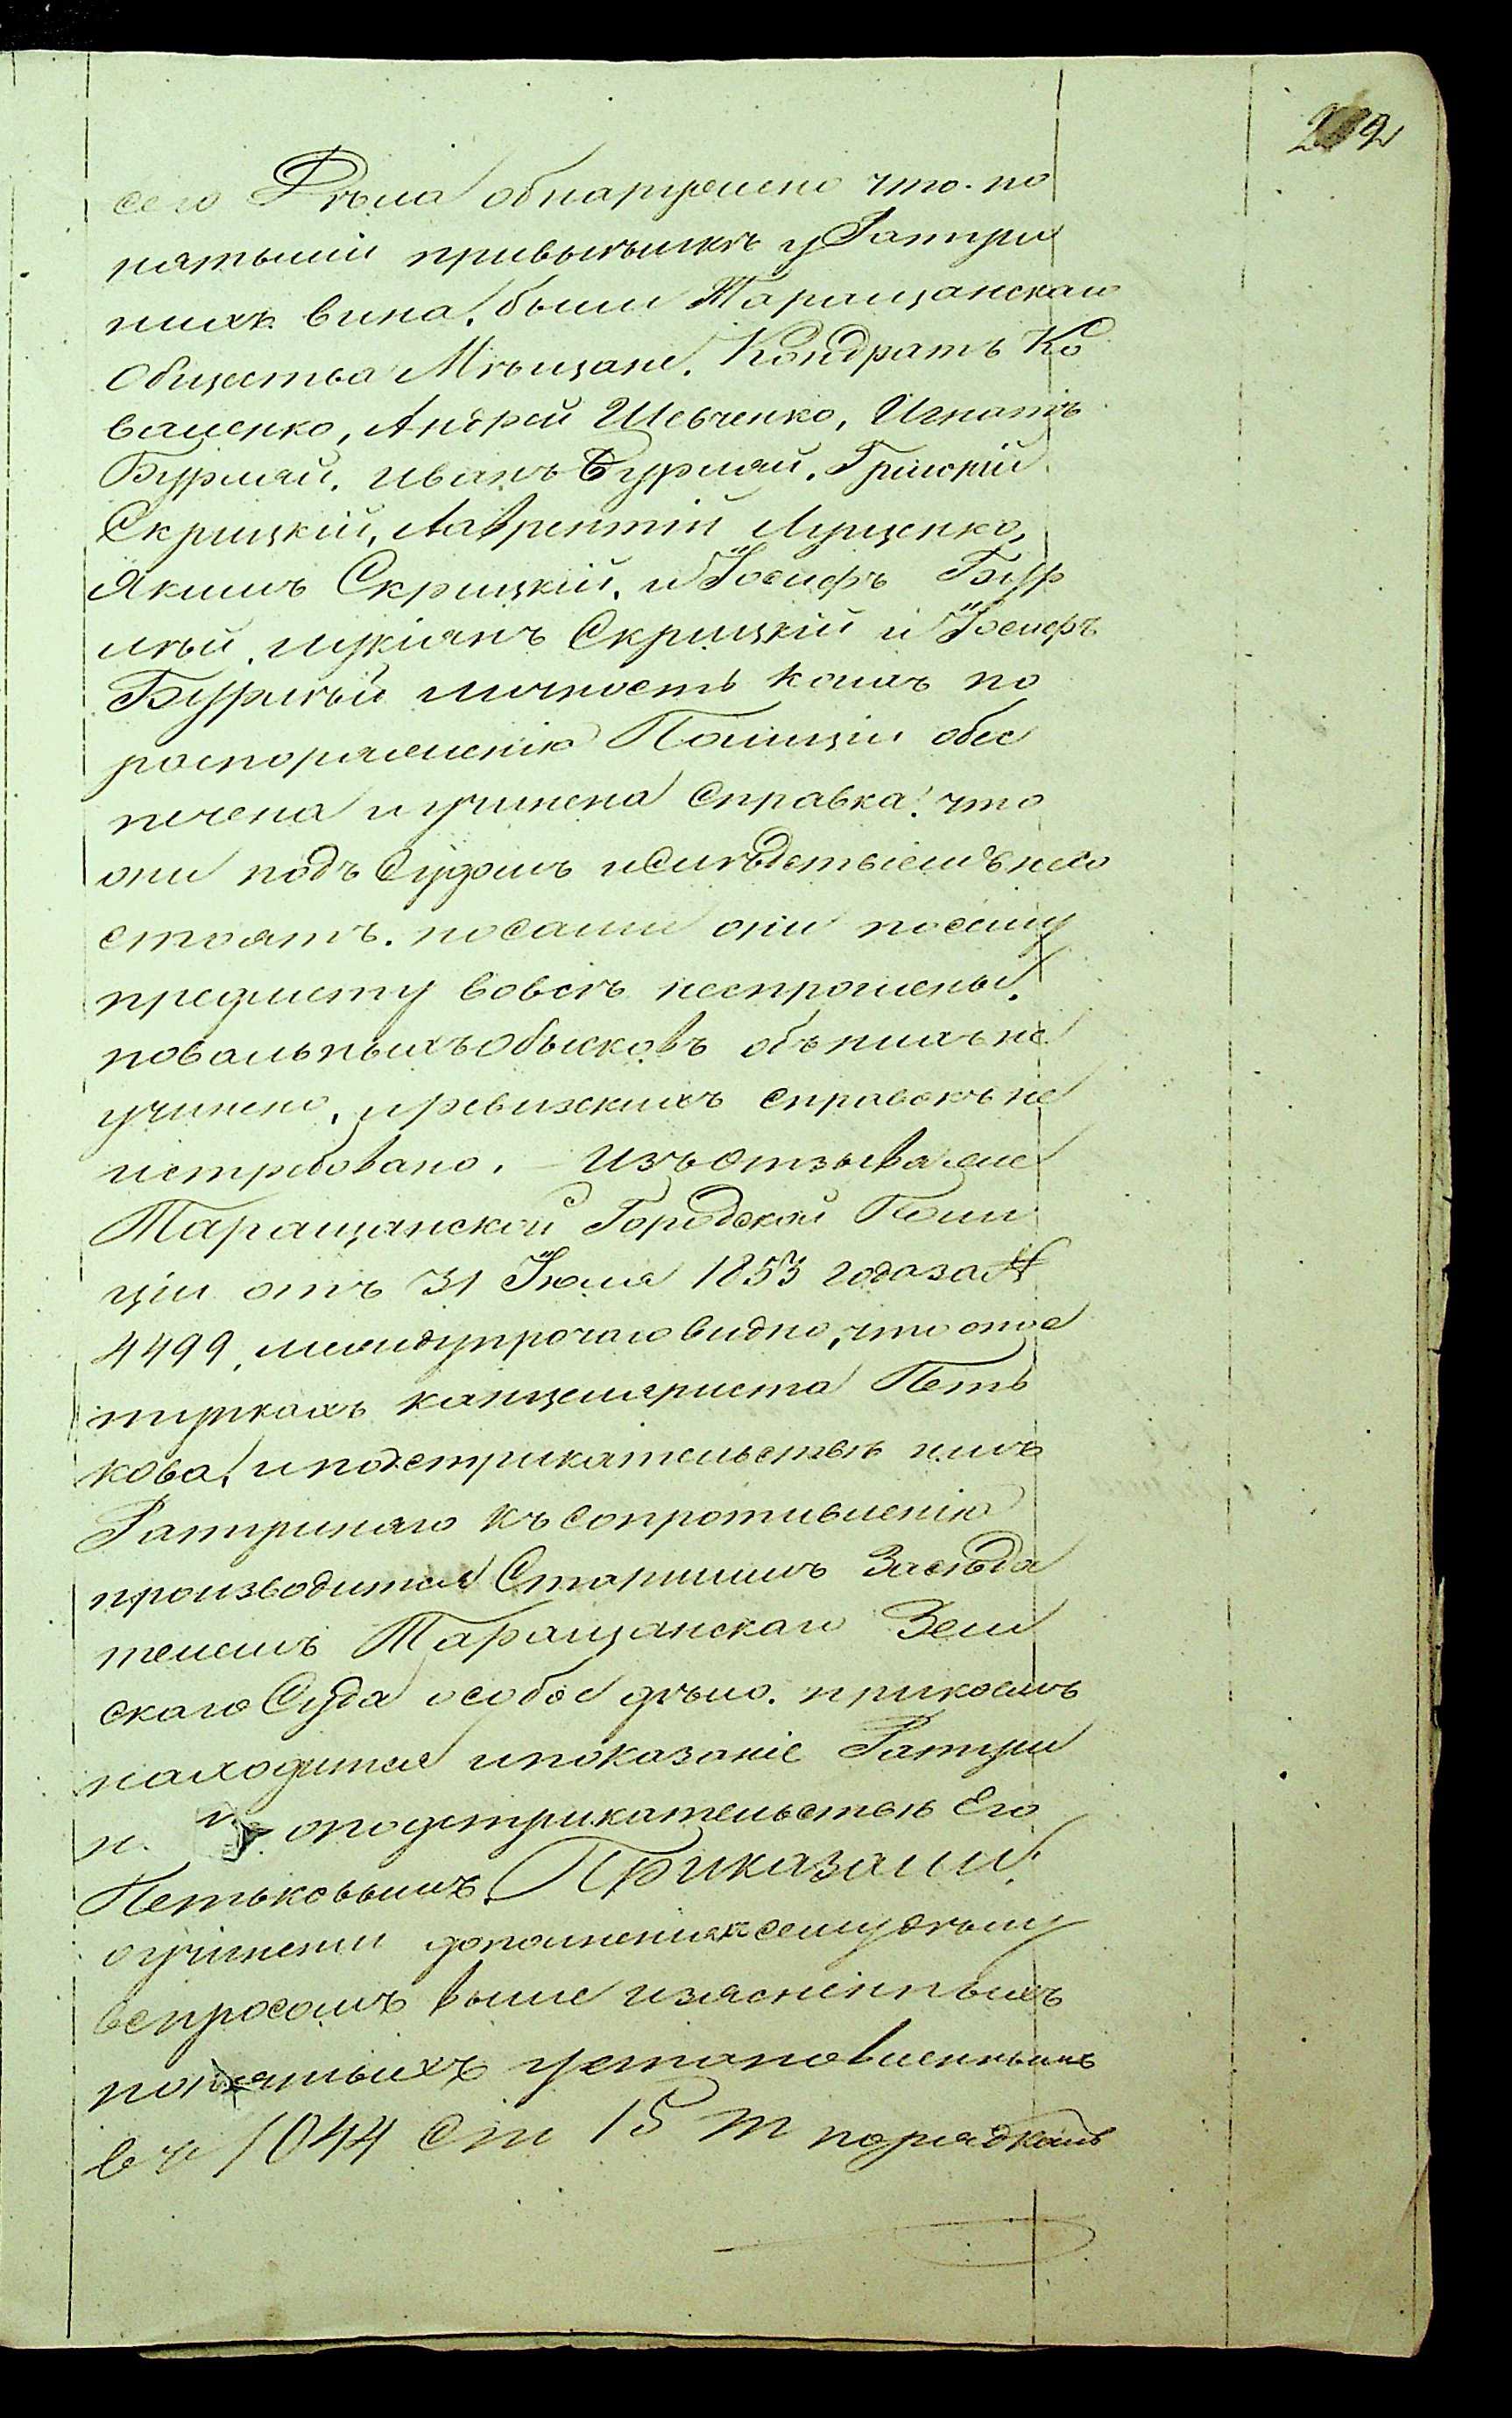 сего Дѣла обнаружено что. по
нятыми при выемкѣ у Ратуш
ныхъ вина. были Таращанскаго
Общества Мѣщане. Кондратъ Ко
валенко, Андрей Шевченко, Игнатъ
Бурмай. Иванъ Бурмай. Григорій
Скрицкій, Лаврентій Луценко,
Якимъ Скрицкій. и Іосифъ Бур
мѣй. Лукіянъ Скрицкій и Іосифъ
Бурмѣй личность коихъ по
распоряженію Полиціи обез
печена и учинена справка. что
они подъ Судомъ и Слѣдствіемъ не со
стоятъ. но сами они по сему
предмету вовсѣ неспрошены.
повальныхъ обысковъ объ нихъ не
учинено. и ревизскихъ справокъ не
истребовано. Изъ отзыва же
Таращанской Городской Поли
ціи отъ 31 Іюля 1853 года за №
4499, между прочаго видно, что о пос
тупкахъ канцеляриста Петь
кова. и подстрикательствѣ имъ
къ сопротивленію
производится Старшимъ Засѣда
телемъ Таращанскаго Зем
скаго Суда особое дѣло. при коемъ
находится и показаніе
о подстрикательствѣ Его
Петьковымъ. Приказали:
о учинении дополнения к сему дѣлу
вспросомъ выше изясненныхъ
понятыхъ установленнымъ
въ 1044 ст 15 т порядкомъ